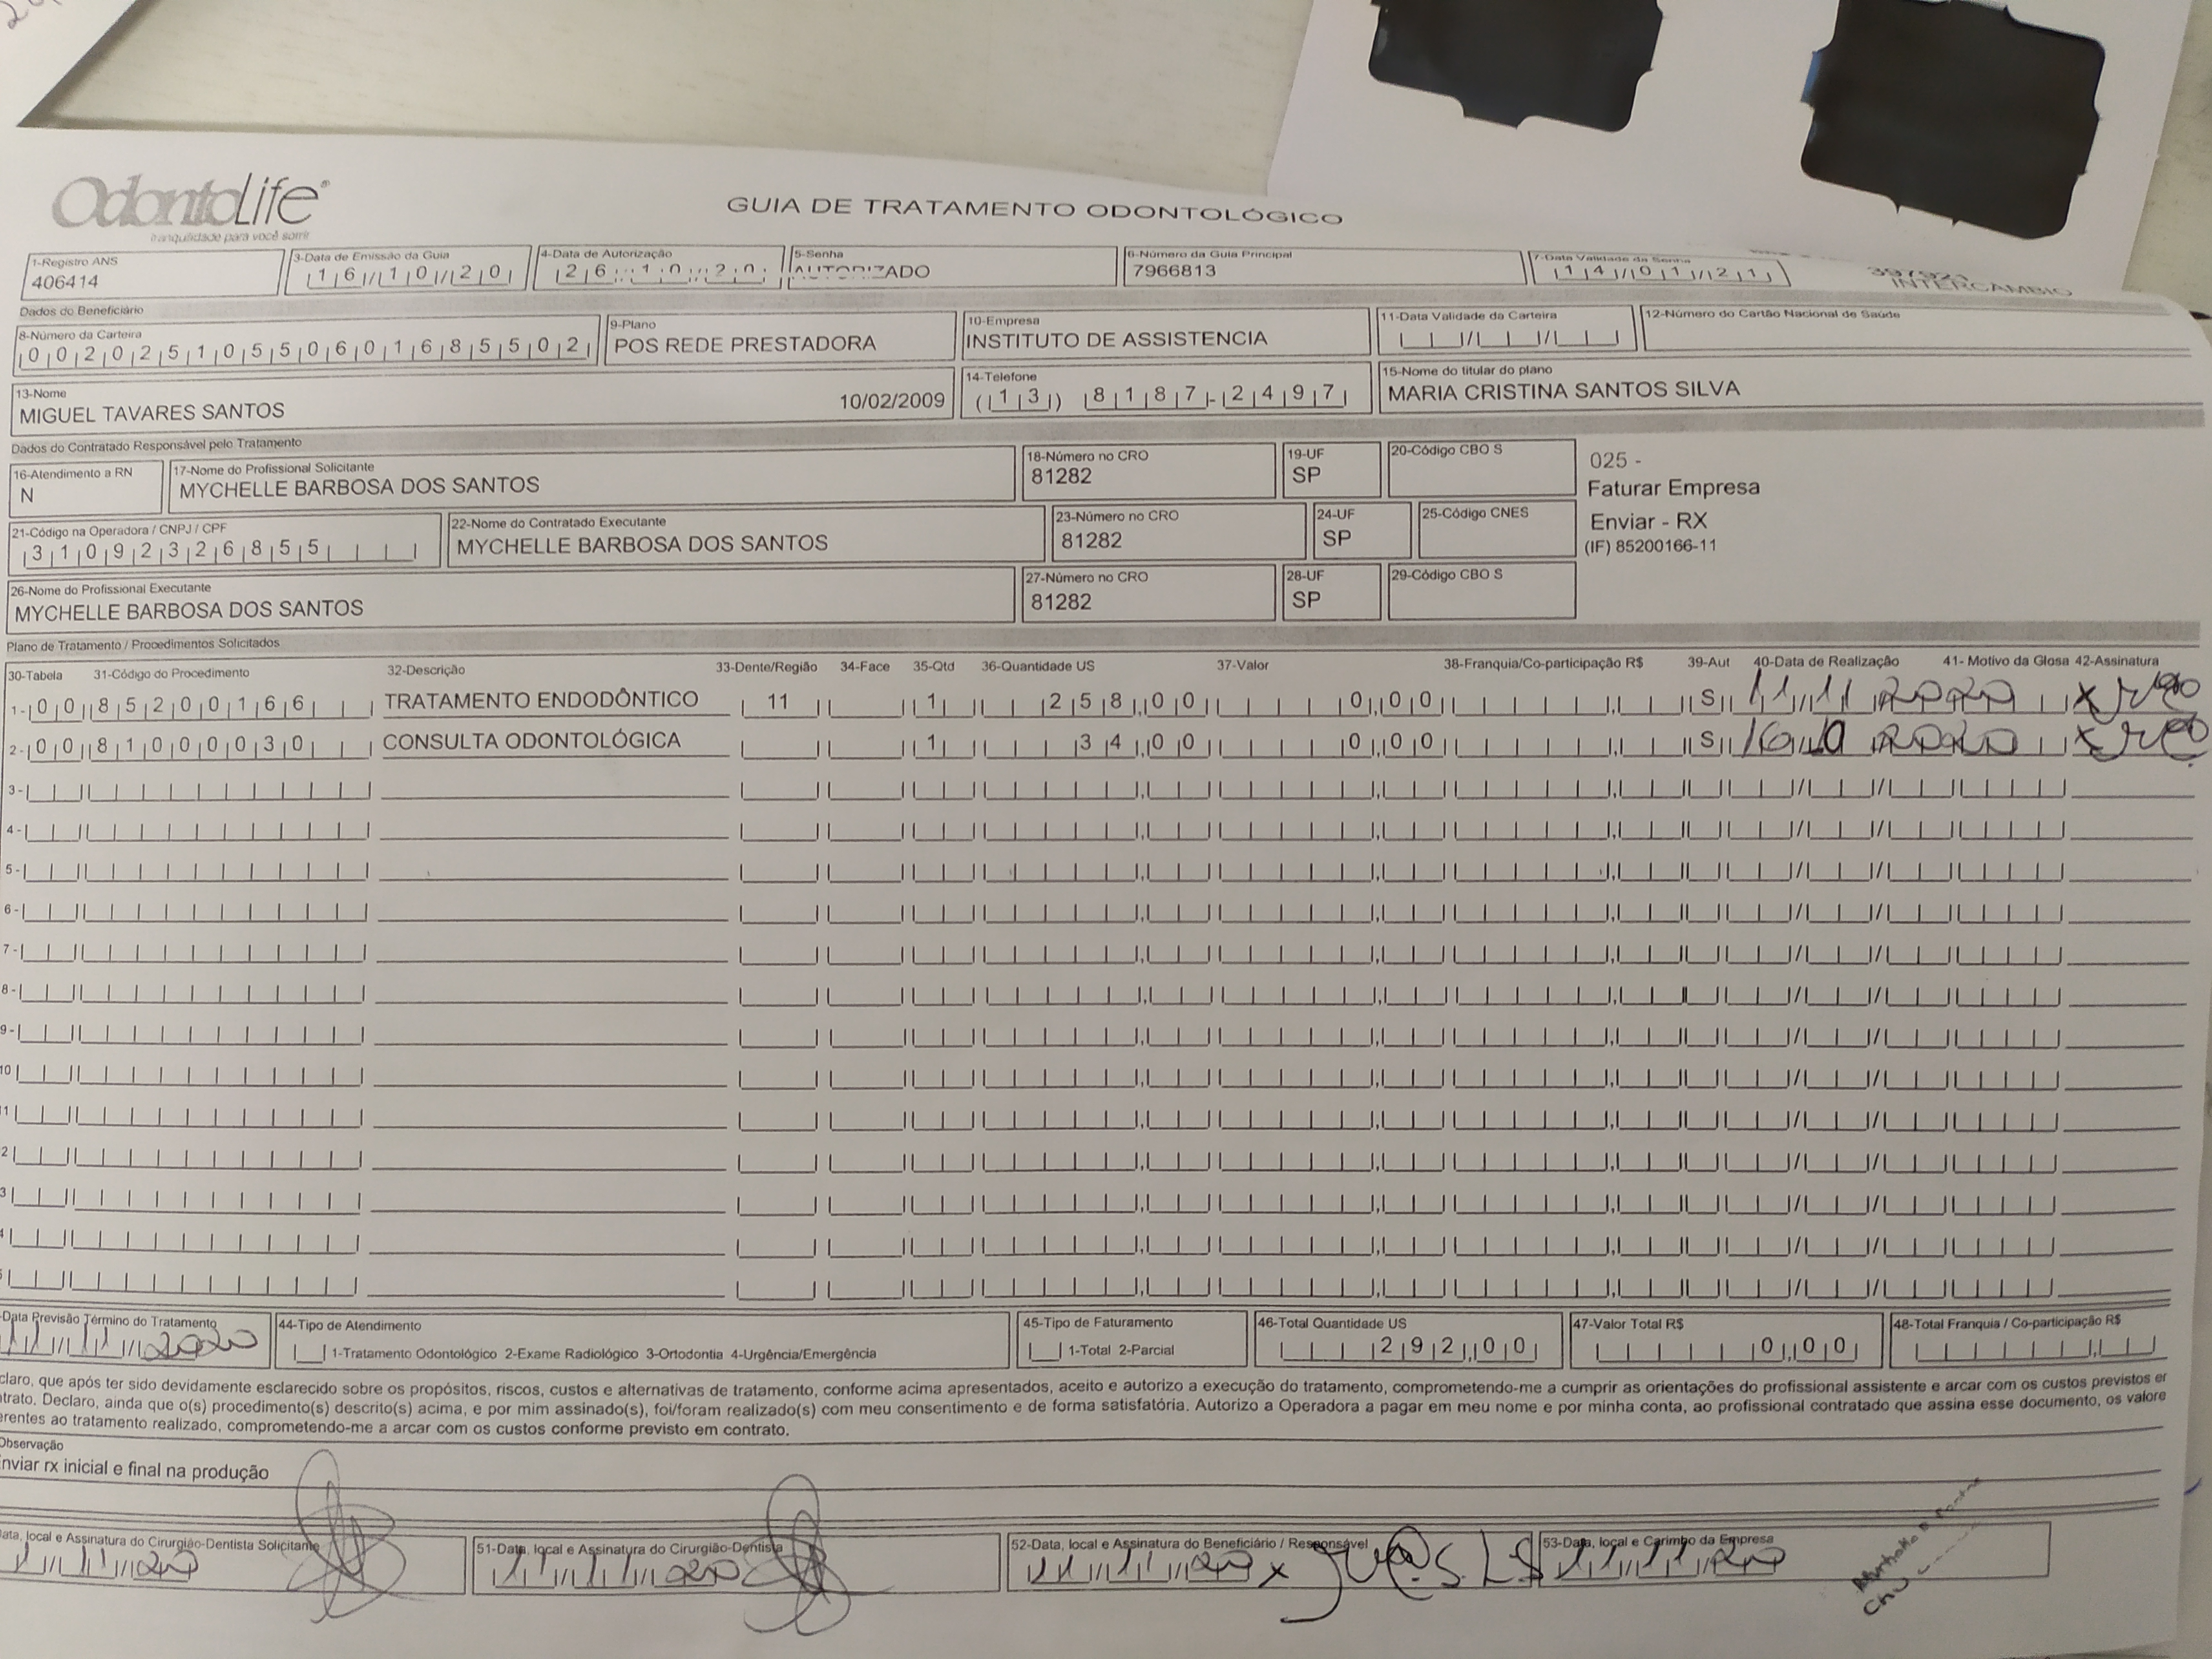 OdontoLife®
tranquilidade para você sorrir
GUIA DE TRATAMENTO ODONTOLÓGICO
1-Registro ANS
406414
3-Data de Emissão da Guia
16/10/20
4-Data de Autorização
26/10/20
5-Senha
AUTORIZADO
6-Número da Guia Principal
7966813
7-Data Validade da Senha
14/01/21
397921
INTERCAMBIO
Dados do Beneficiário
8-Número da Carteira
00202510550601685502
9-Plano
POS REDE PRESTADORA
10-Empresa
INSTITUTO DE ASSISTENCIA
11-Data Validade da Carteira
12-Número do Cartão Nacional de Saúde
13-Nome
MIGUEL TAVARES SANTOS 10/02/2009
14-Telefone
(13) 8187-2497
15-Nome do titular do plano
MARIA CRISTINA SANTOS SILVA
Dados do Contratado Responsável pelo Tratamento
16-Atendimento a RN
N
17-Nome do Profissional Solicitante
MYCHELLE BARBOSA DOS SANTOS
18-Número no CRO
81282
19-UF
SP
20-Código CBO S
025 -
Faturar Empresa
Enviar - RX
(IF) 85200166-11
21-Código na Operadora / CNPJ / CPF
31092326855
22-Nome do Contratado Executante
MYCHELLE BARBOSA DOS SANTOS
23-Número no CRO
81282
24-UF
SP
25-Código CNES
26-Nome do Profissional Executante
MYCHELLE BARBOSA DOS SANTOS
27-Número no CRO
81282
28-UF
SP
29-Código CBO S
Plano de Tratamento / Procedimentos Solicitados
30-Tabela 31-Código do Procedimento 32-Descrição 33-Dente/Região 34-Face 35-Qtd 36-Quantidade US 37-Valor 38-Franquia/Co-participação R$ 39-Aut 40-Data de Realização 41- Motivo da Glosa 42-Assinatura
1- 00 85200166 TRATAMENTO ENDODÔNTICO 11 1 258,00 0,00 S 11/11/2020 x
2- 00 81000030 CONSULTA ODONTOLÓGICA 1 34,00 0,00 S 16/10/2020 x
3-
4-
5-
6-
7-
8-
9-
10
1
2
3
4
5
Data Previsão Término do Tratamento
11/11/2020
44-Tipo de Atendimento
1-Tratamento Odontológico 2-Exame Radiológico 3-Ortodontia 4-Urgência/Emergência
45-Tipo de Faturamento
1-Total 2-Parcial
46-Total Quantidade US
292,00
47-Valor Total R$
0,00
48-Total Franquia / Co-participação R$
claro, que após ter sido devidamente esclarecido sobre os propósitos, riscos, custos e alternativas de tratamento, conforme acima apresentados, aceito e autorizo a execução do tratamento, comprometendo-me a cumprir as orientações do profissional assistente e arcar com os custos previstos er
ntrato. Declaro, ainda que o(s) procedimento(s) descrito(s) acima, e por mim assinado(s), foi/foram realizado(s) com meu consentimento e de forma satisfatória. Autorizo a Operadora a pagar em meu nome e por minha conta, ao profissional contratado que assina esse documento, os valore
erentes ao tratamento realizado, comprometendo-me a arcar com os custos conforme previsto em contrato.
Observação
Enviar rx inicial e final na produção
ata, local e Assinatura do Cirurgião-Dentista Solicitante
11/11/20
51-Data, local e Assinatura do Cirurgião-Dentista
11/11/20
52-Data, local e Assinatura do Beneficiário / Responsável
11/11/20 x
53-Data, local e Carimbo da Empresa
11/11/20